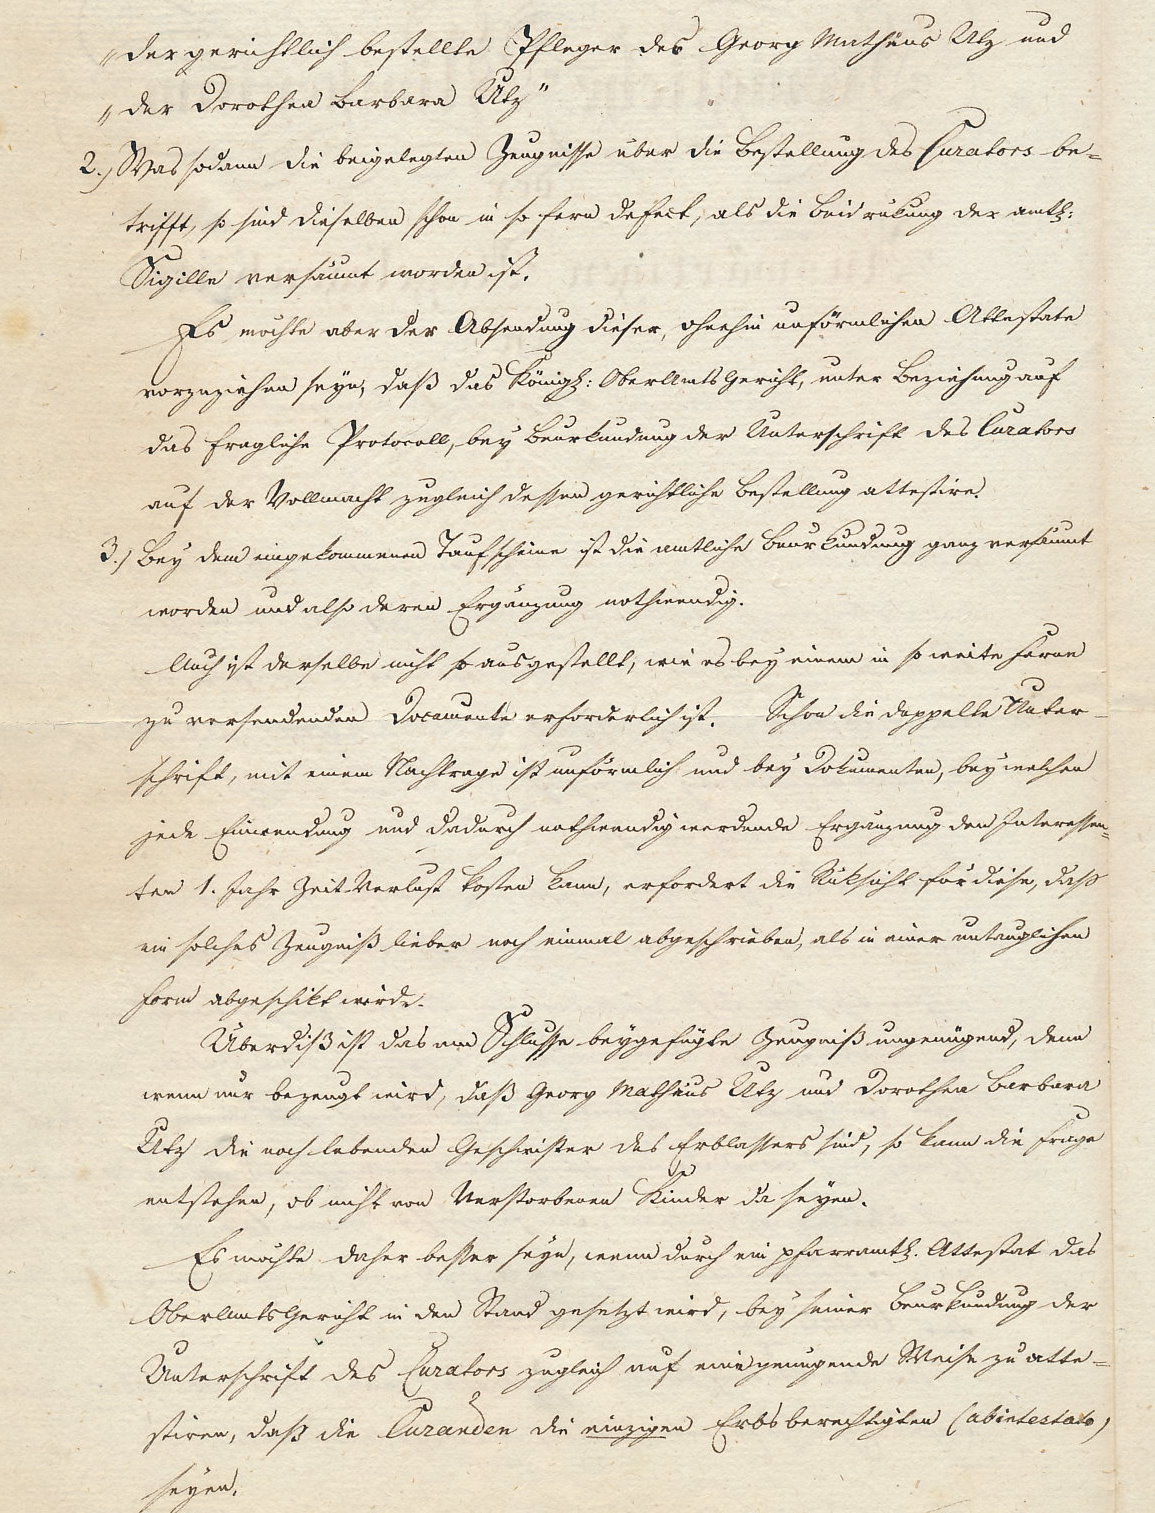 „der gerichtlich bestellte Pfleger des Georg Mathäus Utz und
„der Dorothea Barbara Utz"
2.) Was sodann die beigelegten Zeugnisse über die Bestellung des Curators be-
trifft, so sind dieselben schon in so fern defect, als die Beidrükung der amtl:
Sigille versäumt worden ist.
Es möchte aber der Absendung dieser, ohnehin unförmlichen Attestate
vorzuziehen seyn, daß das Königl: OberAmtsGericht, unter Beziehung auf
das fragliche Protocoll, bey Beurkundung der Unterschrift des Curators
auf der Vollmacht zugleich dessen gerichtliche Bestellung attestire.
3.) Bey dem eingekommenen Taufscheine ist die amtliche Beurkundung ganz versäumt
worden und also deren Ergänzung nothwendig.
Auch ist derselbe nicht so ausgestellt, wie es bey einem in so weite Ferne
zu versendenden Documente erforderlich ist. Schon die doppelte Unter-
schrift, mit einem Nachtrage ist unförmlich und bey Dokumenten, bey welchen
jede Einwendung und dadurch nothwendig werdende Ergänzung den Interessen-
ten 1. Jahr Zeit Verlust kosten kann, erfordert die Rüksicht für diese, daß
ein solches Zeugniß lieber noch einmal abgeschrieben, als in einer untauglichen
Form abgeschikt würde.
Überdiß ist das am Schlusse beygefügte Zeugniß ungenügend, denn
wenn nur bezeugt wird, daß Georg Mathäus Utz und Dorothea Barbara
Utz die noch lebenden Geschwister des Erblassers sind, so kann die Frage
entstehen, ob nicht von Verstorbenen Kinder da seyen.
Es möchte daher besser seyn, wenn durch ein pfarramtl. Attestat das
OberAmtsGericht in den Stand gesetzt wird, bey seiner Beurkundung der
Unterschrift des Curators zugleich auf eine genugende Weise zu atte-
stiren, daß die Curanden die einzigen Erbsberechtigten (abintestato)
seyen.